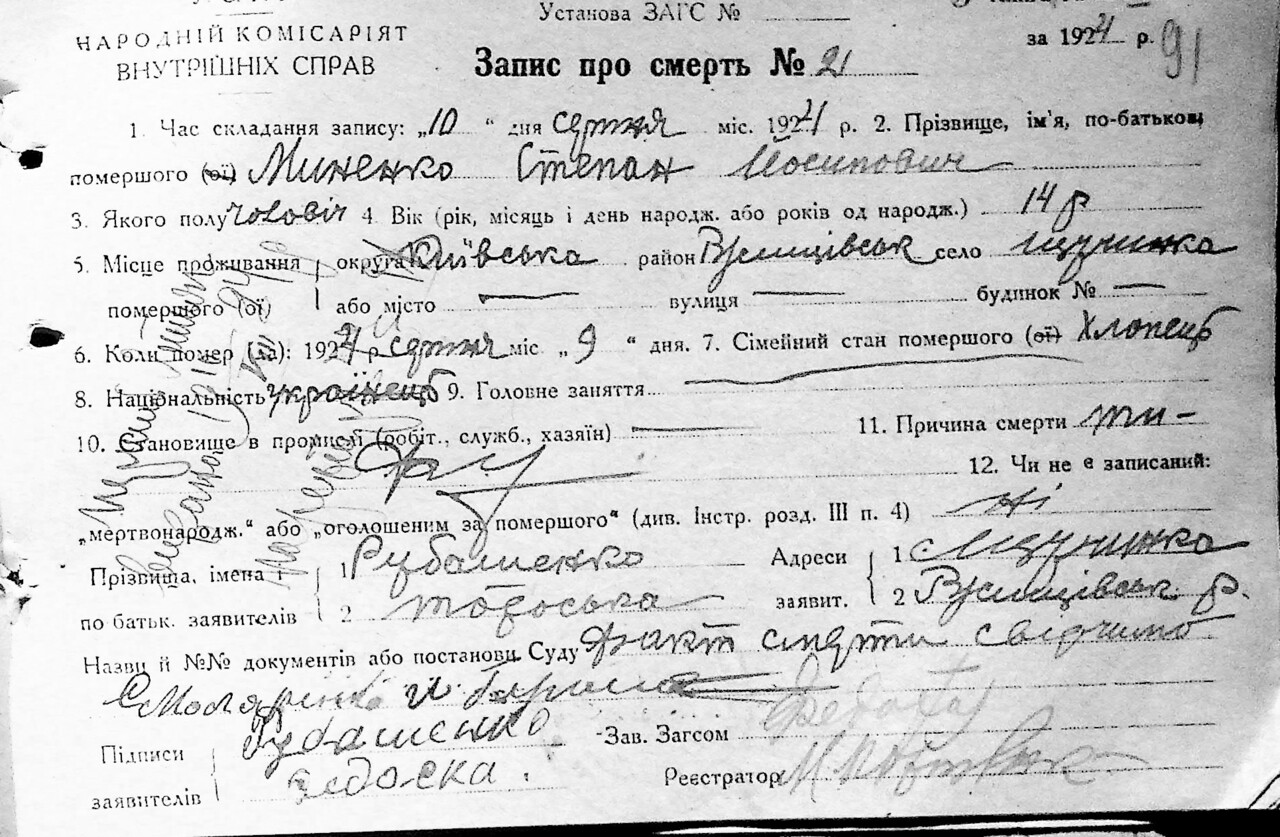 Установа ЗАГС №
НАРОДНІЙ КОМІСАРІЯТ
ВНУТРІШНІХ СПРАВ
за 1924 р. 91
Запис про смерть № 21
1. Час складання запису: „10 “ дня серпня міс. 1924 р. 2. Прізвище, ім'я, по-батькові
помершого (ої) Миненко Степан Йосипович
3. Якого полу чоловіч 4. Вік (рік, місяць і день народж. або років од народж.) 14 р
5. Місце проживання округа Київська район Ржищівськ село Щучинка
помершого (ої) або місто — вулиця — будинок № —
6. Коли помер (ла): 1924 р серпня міс. „ 9 “ дня. 7. Сімейний стан помершого (ої) Хлопець
8. Національність українець 9. Головне заняття
10. Становище в промислі (робіт., служб., хазяїн) — 11. Причина смерти ти-
фу 12. Чи не є записаний:
„мертвонародж.“ або „оголошеним за помершого“ (див. Інстр. розд. III п. 4) ні
Прізвища, імена 1 Рубашенко Адреси 1 с Щучинка
по батьк. заявителів 2 заявит. 2 Ржищівськ р.
Назви й №№ документів або постанови Суду Факт смерти свідчимо
Підписи Рубашенко Зав. Загсом
заявителів Реєстратор